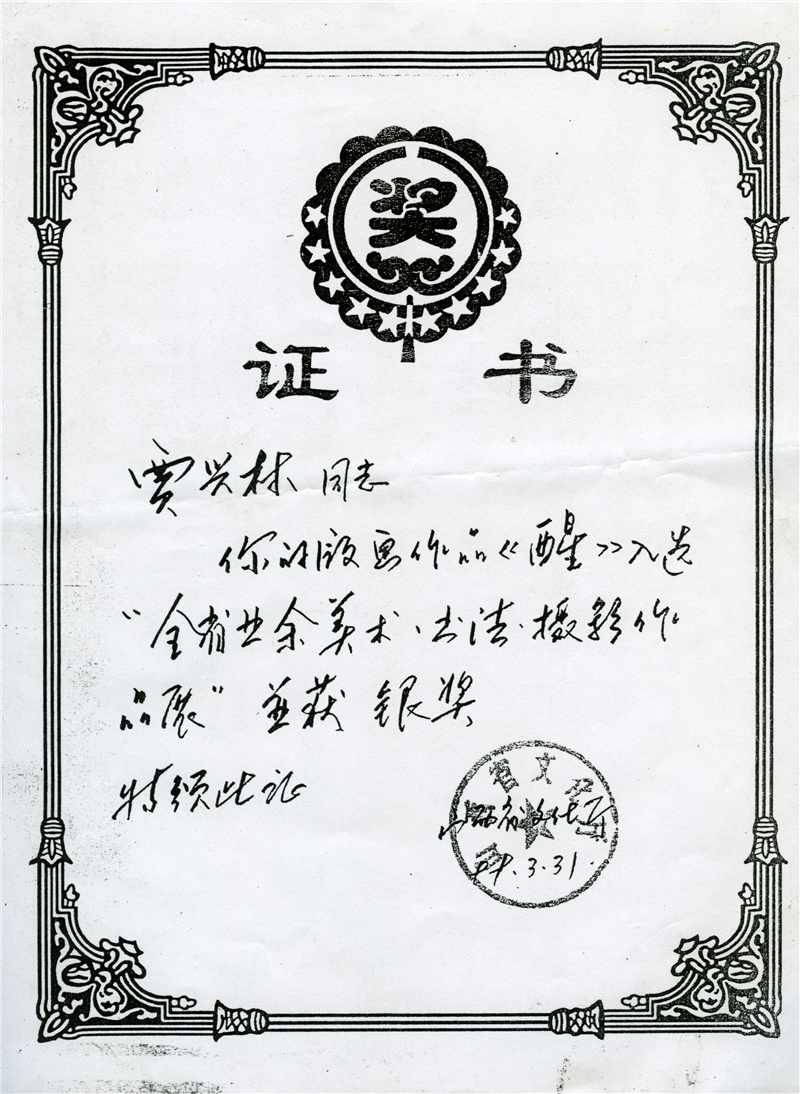 奖
证书
贾兴林 同志
你的版画作品《醒》入选
“全省业余美术、书法、摄影作
品展”并获 银奖
特颁此证
山西省文化厅
.3.31.